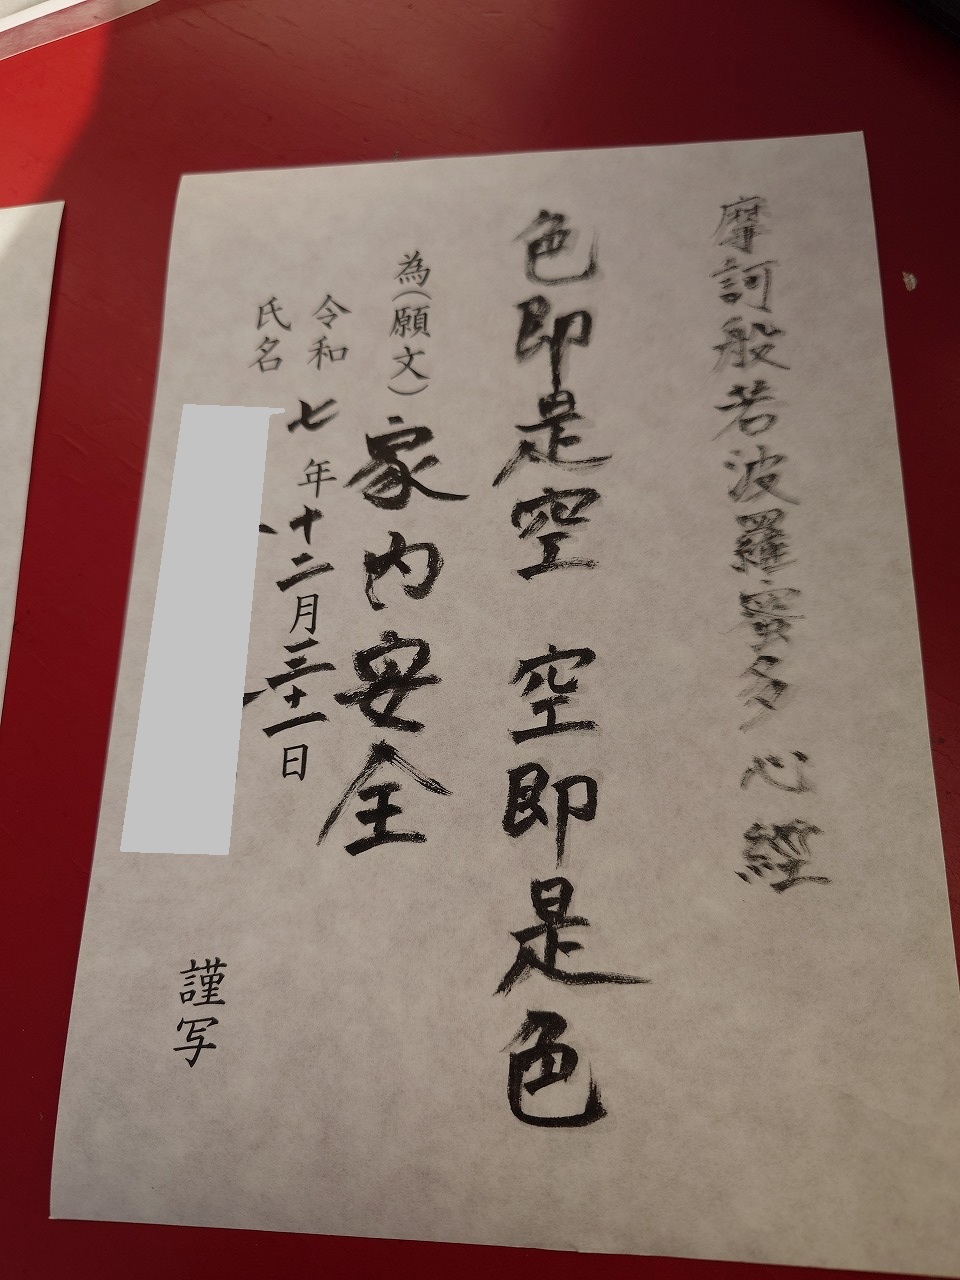 摩訶般若波羅蜜多心経
色即是空 空即是色
為(願文)家内安全
令和七年十二月三十一日
氏名
謹写